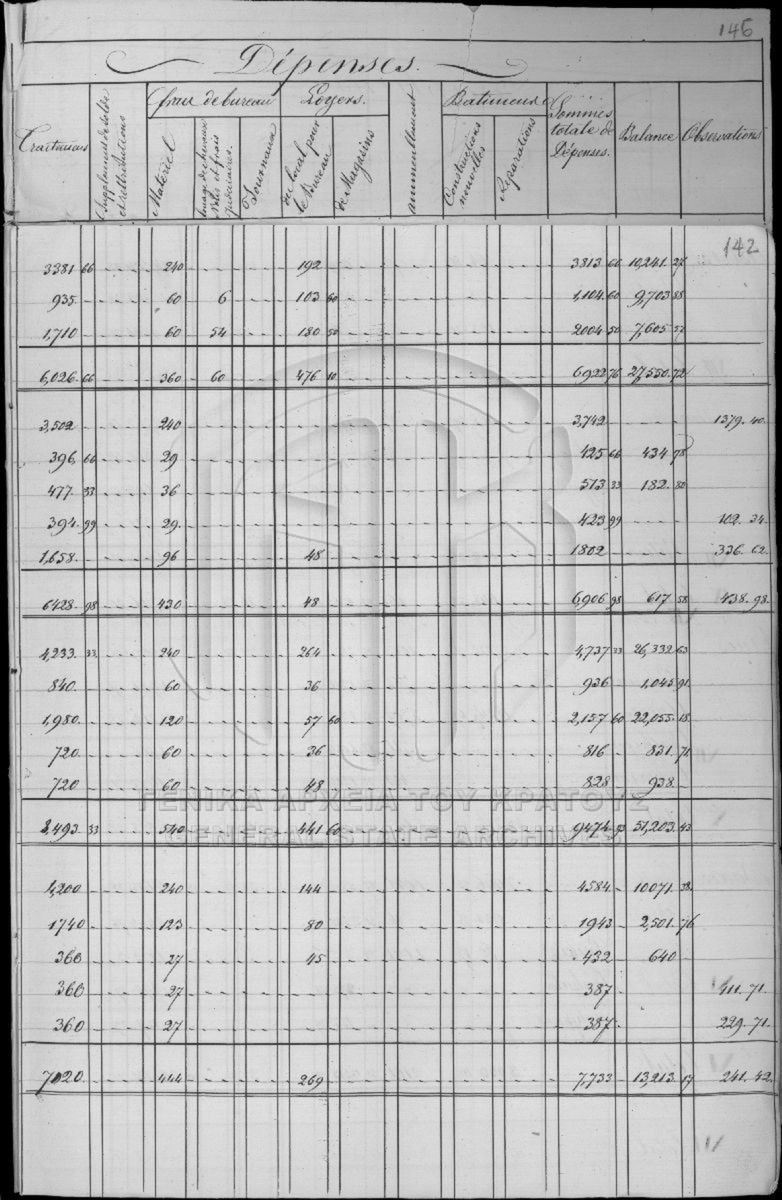 146
Dépenses.
Traitemens
Supplément de solde et rétributions
frais de bureau
Matériel
louage de chevaux
Journaux
Loyers.
du local pour le Bureau
de Magasins
Batimens
Constructions nouvelles
Réparations
Sommes totale de Dépenses.
Balance
Observations
142
3381 66 240 192 3813 66 10,241 27
935 60 6 103 60 1,104 60 9,703 88
1,710 60 54 180 50 2004 50 7,605 57
6,026 66 360 60 476 10 6922 76 27,550 72
3,502 240 3,742 1379. 40
396, 66 29 425 66 434 78
477. 33 36 513 33 182. 80
394. 99 29 423 99 102. 34
1,658. 96 48 1802 336. 62
6428. 98 430 48 6,906 98 617 58 438. 98.
4,233. 33 240 264 4,737 33 26,332 63
840. 60 36 936 1,045 91
1,980. 120 57 60 2,157 60 22,055. 18
720. 60 36 816 831. 71
720 60 48 828 938.
8,493 33 540 441 60 9474. 93 51,203. 43
4,200 240 144 4584. 10071. 38.
1740 123 80 1943 2,501. 76
360 27 45 432 640
360 27 387 411. 71.
360 27 387 229. 71
7020. 444 269 7,733 13,213. 17 241. 42.
ΓΕΝΙΚΑ ΑΡΧΕΙΑ ΤΟΥ ΚΡΑΤΟΥΣ
GENERAL STATE ARCHIVES